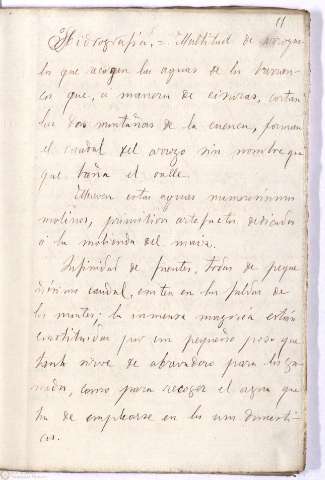 11
Hidrografía. = Multitud de arroyue
los que acogen las aguas de los barran-
cos que, a manera de cisuras, cortan
las dos montañas de la cuenca, forman
el caudal del arroyo sin nombre que
que baña el valle.
Mueven estas aguas numerosísimos
molinos, primitivos artefactos dedicados
á la molienda del maíz.
Infinidad de fuentes, todas de peque
ñísimo caudal, en las faldas de
los montes; la inmensa mayoría están
constituidas por un pequeño pozo que
tanto sirve de abrevadero para los ga-
nados, como para recoger el agua que
ha de emplearse en los usos domésti-
cos.